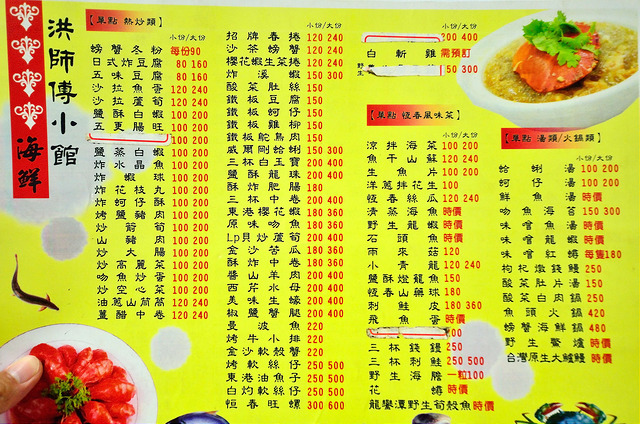 洪師傅小館
海鮮
【單點 熱炒類】
小份/大份
螃蟹冬粉 每份90
日式炸豆腐 80 160
五味豆腐 80 160
沙拉魚蛋 120 240
沙拉蘆筍 120 240
鹽酥白蝦 100 200
五更腸旺 100 200
鹽蒸白蝦 100 200
炸水晶魚 100 200
炸蝦球 100 200
炸花枝丸 100 200
炸蚵仔酥 100 200
烤鹽豬肉 100 200
炒箭筍 100 200
山豬肉 100 200
炒大腸 100 200
炒高麗菜 100 200
吻魚炒蛋 100 200
炒空心菜 100 200
油蔥山茼蒿 120 240
薑醋中卷 120 240
小份/大份
招牌春捲 120 240
沙茶螃蟹 120 240
櫻花蝦生菜捲 120 240
炸溪蝦 150 300
酸菜肚絲 150
鐵板豆腐 150
鐵板蚵仔 150
鐵板雞柳 150
鐵板鴕鳥肉 150
威爾剛蛤蜊 150 300
三杯白玉寶 200 400
鹽酥龍珠 200 400
酥炸肥腸 180
三杯中卷 200 400
東港櫻花蝦 180 360
原味吻魚 180 360
Lp貝炒蘆筍 200 400
金沙苦瓜 180 360
酥炸中卷 180 360
醬山羊肉 200 400
西芹水母 200 400
美味生蠔 200 400
椒鹽蟹腿 200 400
曼波魚 220
烤牛小排 220
金沙軟殼蟹 220
烤軟絲仔 250 500
東港油魚子 250 500
白灼軟絲仔 250 500
恒春旺螺 300 600
小份/大份
200 400
白斬雞 需預訂
野生
150 300
【單點 恆春風味菜】
小份/大份
涼拌海菜 100 200
魚干山蘇 120 240
生魚片 100 200
洋蔥拌花生 100
恆春絲瓜 120 240
清蒸海魚 時價
野生龍蝦 時價
石頭魚 時價
雨來菇 120
小青龍 120 240
鹽酥燈籠魚 150
恆春山藥球 180
刺鮭皮 180 360
飛魚蛋 時價
三杯錢鰻 250
三杯刺鮭 250 500
野生海膽 一粒100
花蟳 時價
龍鑾潭野生筍殼魚 時價
【單點 湯類/火鍋類】
小份/大份
蛤蜊湯 100 200
蚵仔湯 100 200
鮮魚湯 時價
吻魚海苔 150 300
味噌魚湯 時價
味噌龍蝦 時價
味噌紅蟳 每隻180
枸杞燉錢鰻 250
酸菜肚片湯 150
酸菜白肉鍋 250
魚頭火鍋 420
螃蟹海鮮鍋 480
野生鱉爐 時價
台灣原生大鱸鰻 時價